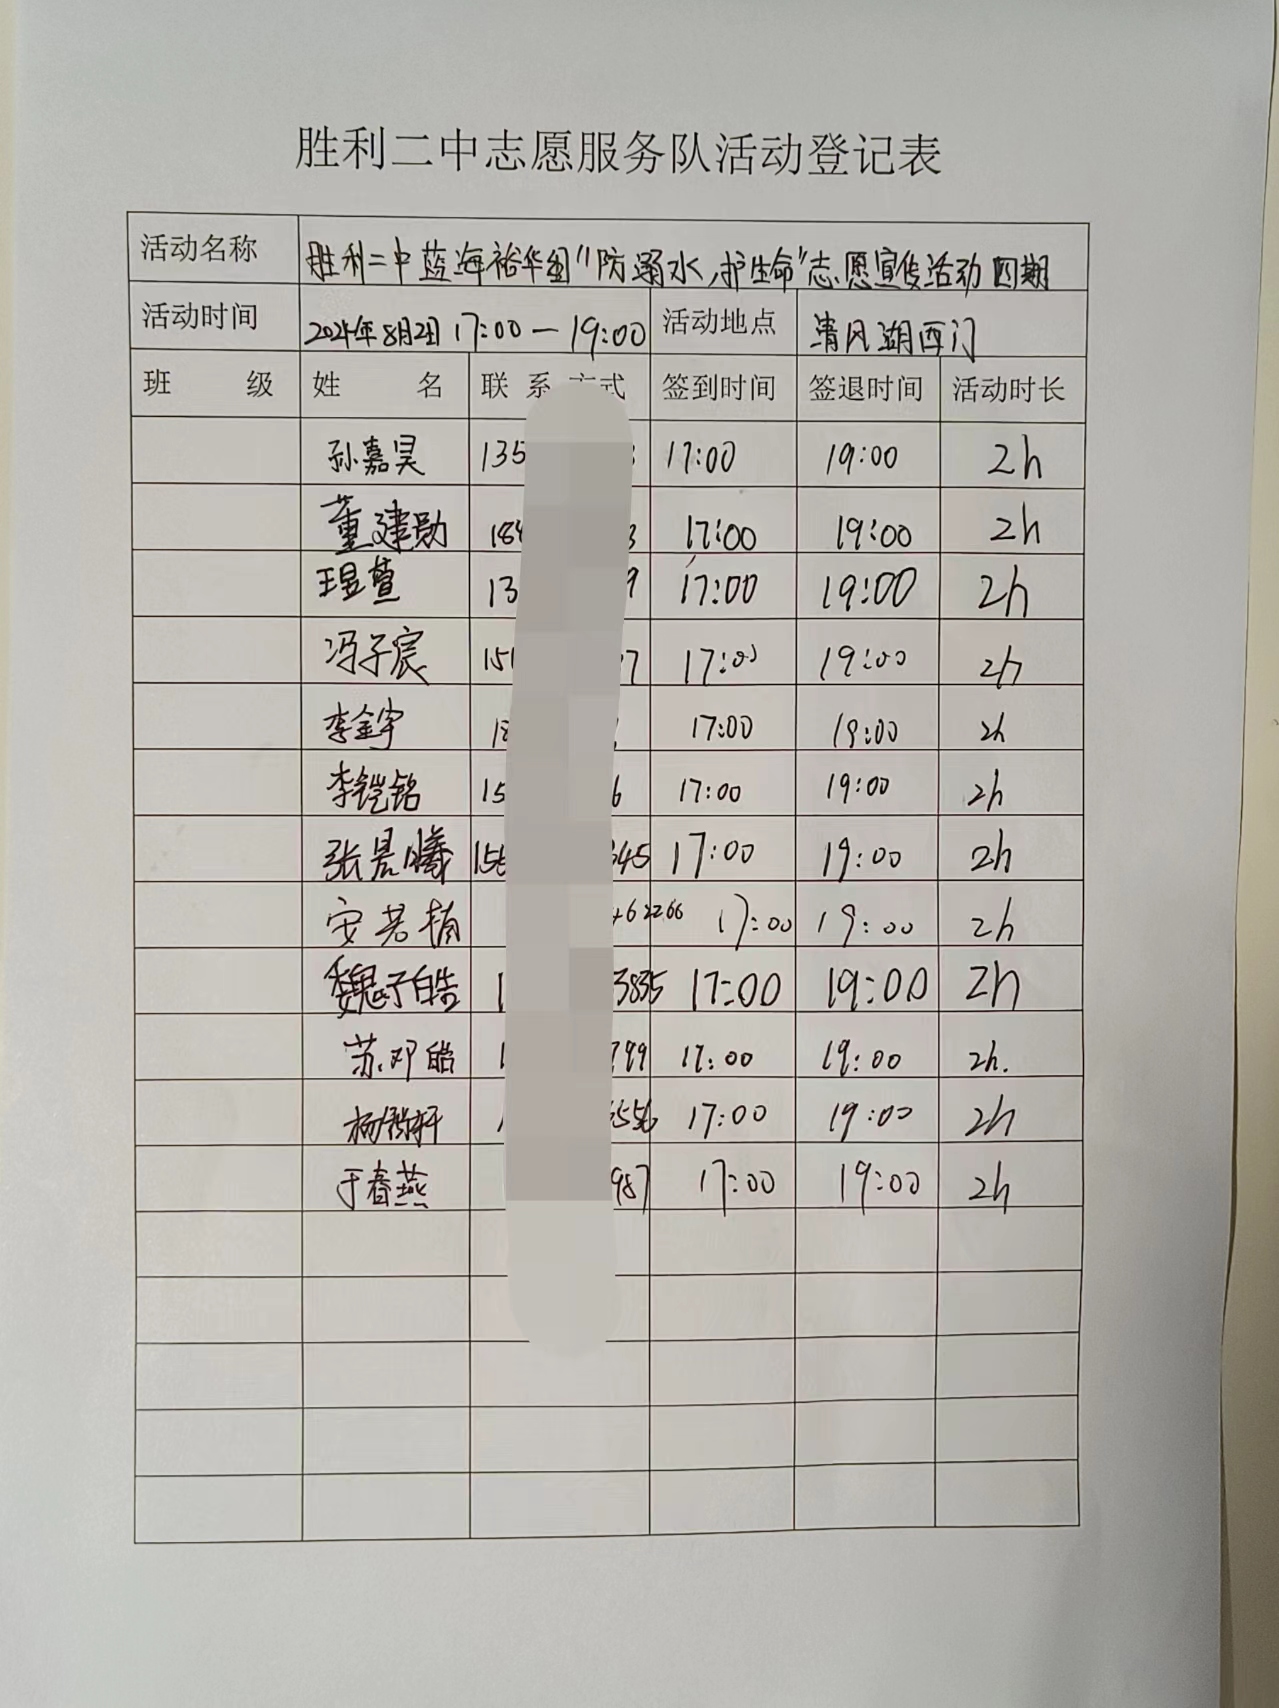 胜利二中志愿服务队活动登记表
活动名称 胜利二中蓝海裕华组"防溺水,护生命"志愿宣传活动四期
活动时间 2024年8月2日 17:00—19:00 活动地点 清风湖西门
班 级 姓 名 联 系 方式 签到时间 签退时间 活动时长
孙嘉昊 135 17:00 19:00 2h
董建勋 184 3 17:00 19:00 2h
王昱萱 13 9 17:00 19:00 2h
冯子宸 150 7 17:00 19:00 2h
李金宇 18 17:00 19:00 2h
李铠铭 15 6 17:00 19:00 2h
张晨曦 156 345 17:00 19:00 2h
安若楠 462266 17:00 19:00 2h
魏子皓 1 3835 17:00 19:00 2h
苏邓皓 1 799 17:00 19:00 2h.
杨 轩 1 5556 17:00 19:00 2h
于春燕 987 17:00 19:00 2h